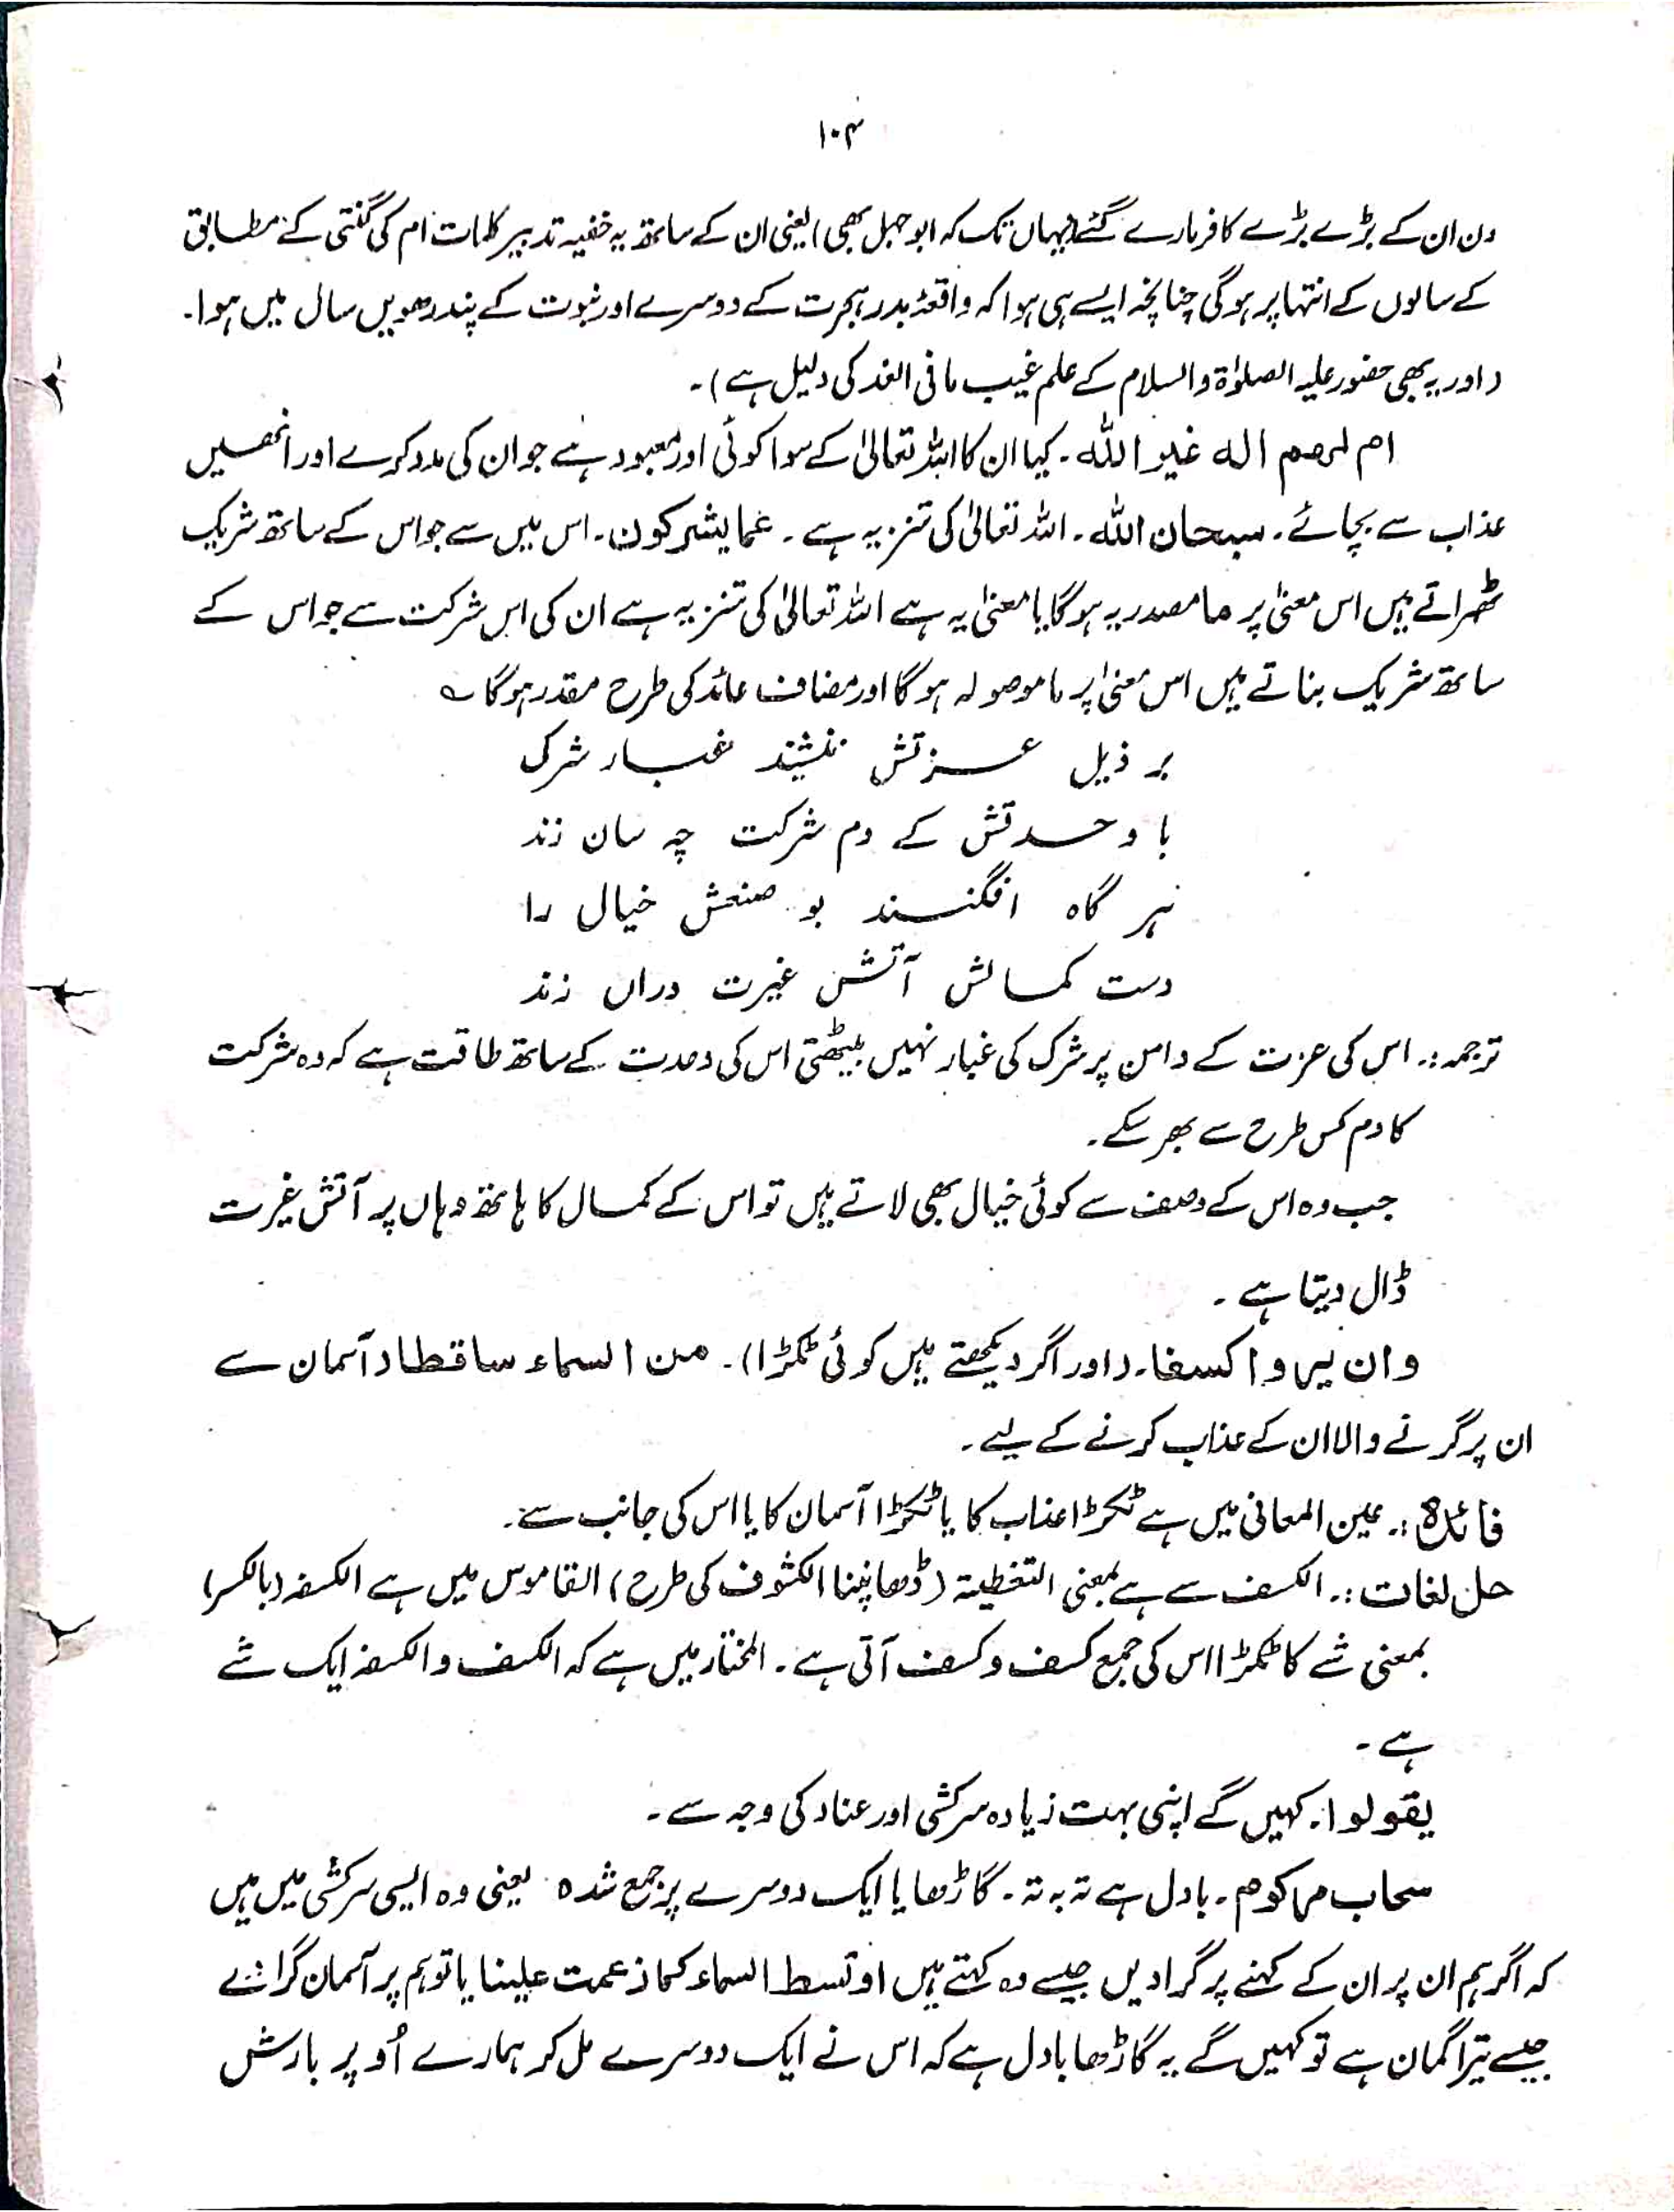 ۱۰۴
دن ان کے بڑے بڑے کافر مارے گئے (یہاں تک کہ ابوجہل بھی) یعنی ان کے ساتھ یہ خفیہ تدبیر کلمات ام کی گنتی کے مطابق
کے سالوں کے انتہا پر ہوگی چنانچہ ایسے ہی ہوا کہ واقعۂ بدر ہجرت کے دوسرے اور نبوت کے پندرھویں سال میں ہوا۔
(اور یہ بھی حضور علیہ الصلوٰۃ والسلام کے علم غیب مافی الغد کی دلیل ہے)۔
ام لہم الہ غیر اللّٰہ۔ کیا ان کا اللہ تعالیٰ کے سوا کوئی اور معبود ہے جو ان کی مدد کرے اور انھیں
عذاب سے بچائے۔ سبحان اللّٰہ۔ اللہ تعالیٰ کی تنزیہ ہے۔ عما یشرکون۔ اس میں سے جو اس کے ساتھ شریک
ٹھراتے ہیں اس معنیٰ پر ما مصدریہ ہوگا یا معنیٰ یہ ہے اللہ تعالیٰ کی تنزیہ ہے ان کی اس شرکت سے جو اس کے
ساتھ شریک بناتے ہیں اس معنیٰ پر ما موصولہ ہوگا اور مضاف عائد کی طرح مقدر ہوگا ؎
بر ذیل عزتش ننشیند غبار شرک
با وحدتش کے دم شرکت چہ سان زند
ہر گاہ افگنند بو صنعش خیال را
دست کمالش آتش غیرت دراں زند
ترجمہ:۔ اس کی عزت کے دامن پر شرک کی غبار نہیں بیٹھتی اس کی وحدت کے ساتھ طاقت ہے کہ وہ شرکت
کا دم کس طرح سے بھر سکے۔
جب وہ اس کے وصف سے کوئی خیال بھی لاتے ہیں تو اس کے کمال کا ہاتھ وہاں پر آتش غیرت
ڈال دیتا ہے۔
وان یروا کسفا۔ (اور اگر دیکھتے ہیں کوئی ٹکڑا)۔ من السماء ساقطا (آسمان سے
ان پر گرنے والا ان کے عذاب کرنے کے لیے۔
فائدہ:۔ عین المعانی میں ہے ٹکڑا عذاب کا یا ٹکڑا آسمان کا یا اس کی جانب سے۔
حل لغات:۔ الکسف سے ہے بمعنی التغطیۃ (ڈھانپنا الکثوف کی طرح) القاموس میں ہے الکسفہ (بالکسر)
بمعنی شے کا ٹکڑا اس کی جمع کسف وکسف آتی ہے۔ المختار میں ہے کہ الکسف والکسفہ ایک شے
ہے۔
یقولوا۔ کہیں گے اپنی بہت زیادہ سرکشی اور عناد کی وجہ سے۔
سحاب مرکوم۔ بادل ہے تہ بہ تہ۔ گاڑھا یا ایک دوسرے پر جمع شدہ یعنی وہ ایسی سرکشی میں ہیں
کہ اگر ہم ان پر ان کے کہنے پر گرا دیں جیسے وہ کہتے ہیں او تسقط السماء کما زعمت علینا یا تو ہم پر آسمان گرا دے
جیسے تیرا گمان ہے تو کہیں گے یہ گاڑھا بادل ہے کہ اس نے ایک دوسرے مل کر ہمارے اُوپر بارش